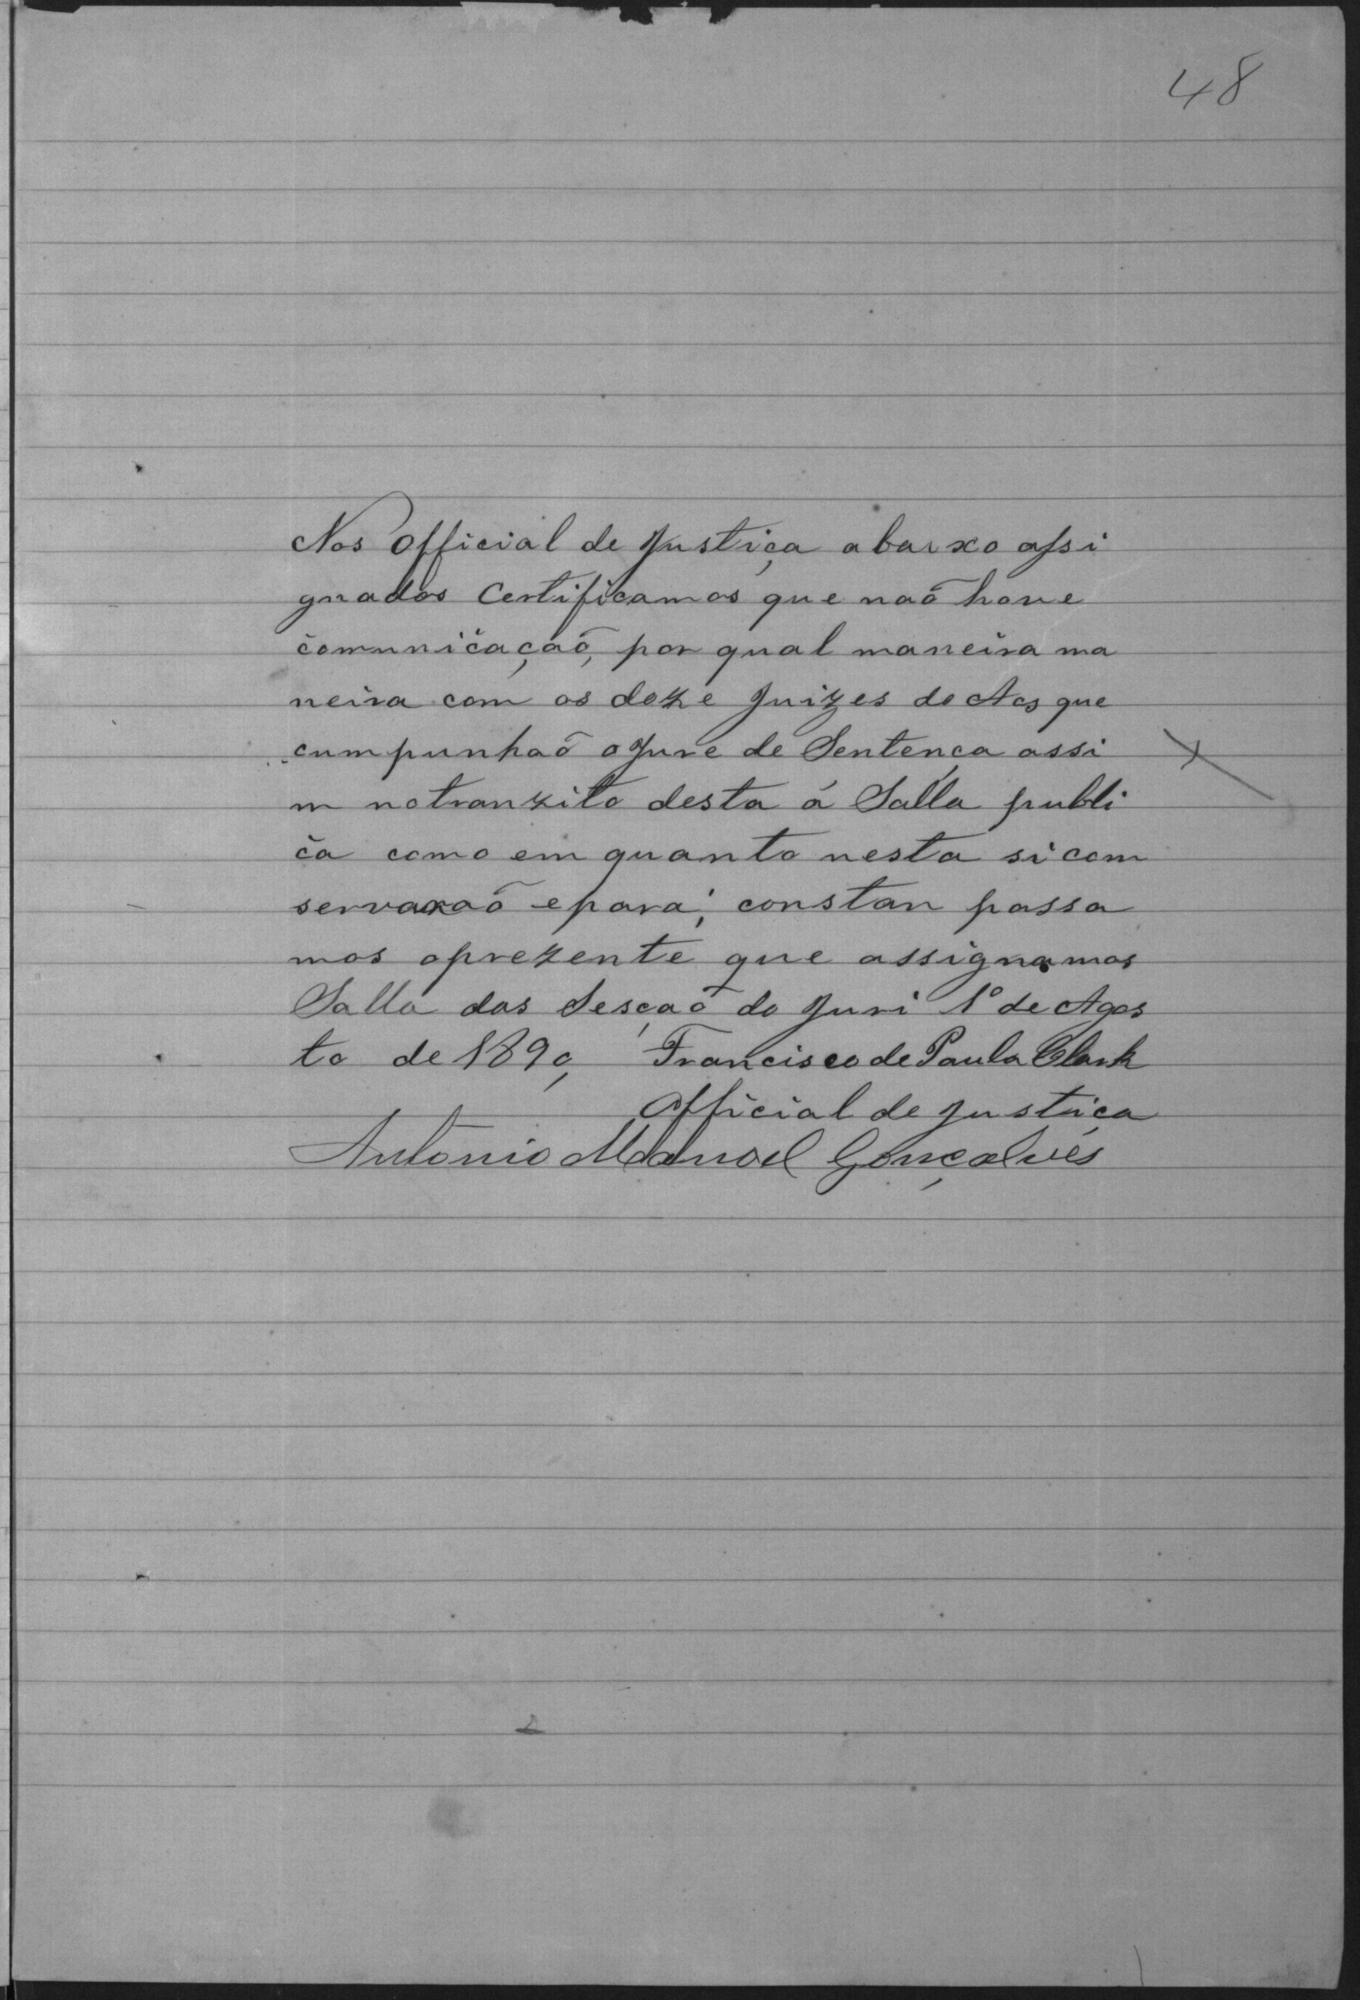 48
Nos Official de Justiça abaixo assi
gnados Certificamos que naõ houve
comunicaçaõ, por qual maneira ma
neira com os doze Juizes de que
cumpunhaõ o Jure de Sentença assi
m no tranzito desta á Salla publi
ca como em quanto nesta si com
servaraõ e para, constan passa
mos aprezente que assignamos
Salla das Sesçaõ do Juri 1º de Agos
to de 1890, Francisco de Paula Clark
Official de Justiça
Antonio Manoel Gonçalves